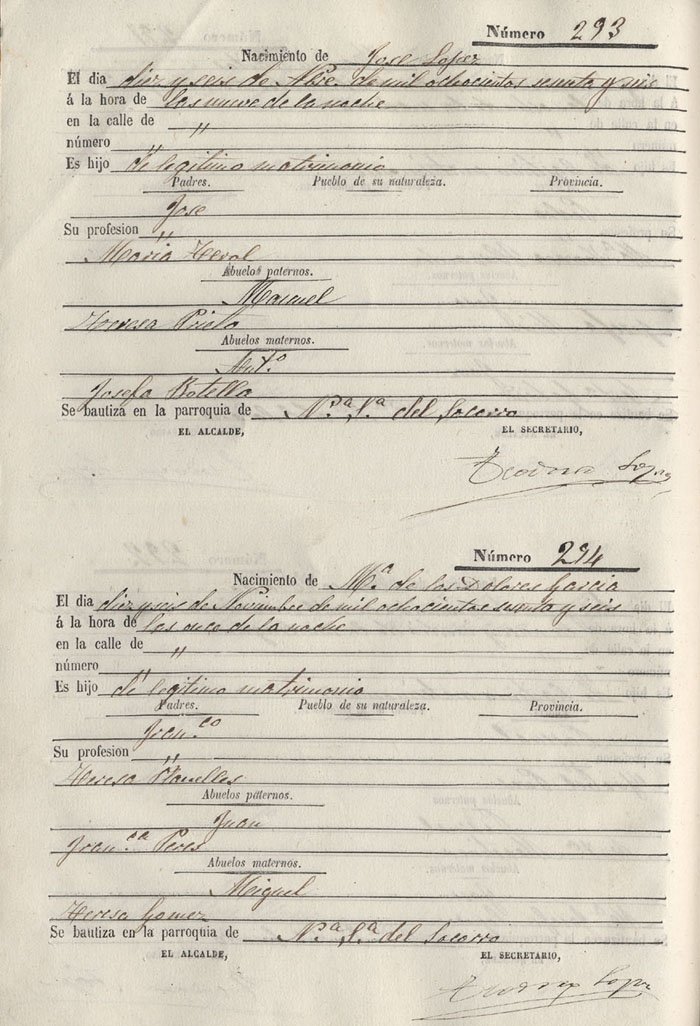 Número 293
Nacimiento de Jose Lopez
El dia diez y seis de Nbre. de mil ochocientos sesenta y seis
á la hora de las nueve de la noche
en la calle de "
número "
Es hijo de legitimo matrimonio
Padres. Pueblo de su naturaleza. Provincia.
Jose
Su profesion "
Maria Terol
Abuelos paternos.
Manuel
Theresa Prieto
Abuelos maternos.
Ant.o
Josefa Botella
Se bautiza en la parroquia de N.a S.a del Socorro
EL ALCALDE, EL SECRETARIO,
Teodoro Lopez
Número 294
Nacimiento de M.a de los Dolores Garcia
El dia diez y seis de Noviembre de mil ochocientos sesenta y seis
á la hora de las once de la noche
en la calle de "
número "
Es hijo de legitimo matrimonio
Padres. Pueblo de su naturaleza. Provincia.
Fran.co
Su profesion "
Teresa Planelles
Abuelos paternos.
Juan
Fran.ca Peres
Abuelos maternos.
Miguel
Teresa Gomez
Se bautiza en la parroquia de N.a S.a del Socorro
EL ALCALDE, EL SECRETARIO,
Teodoro Lopez